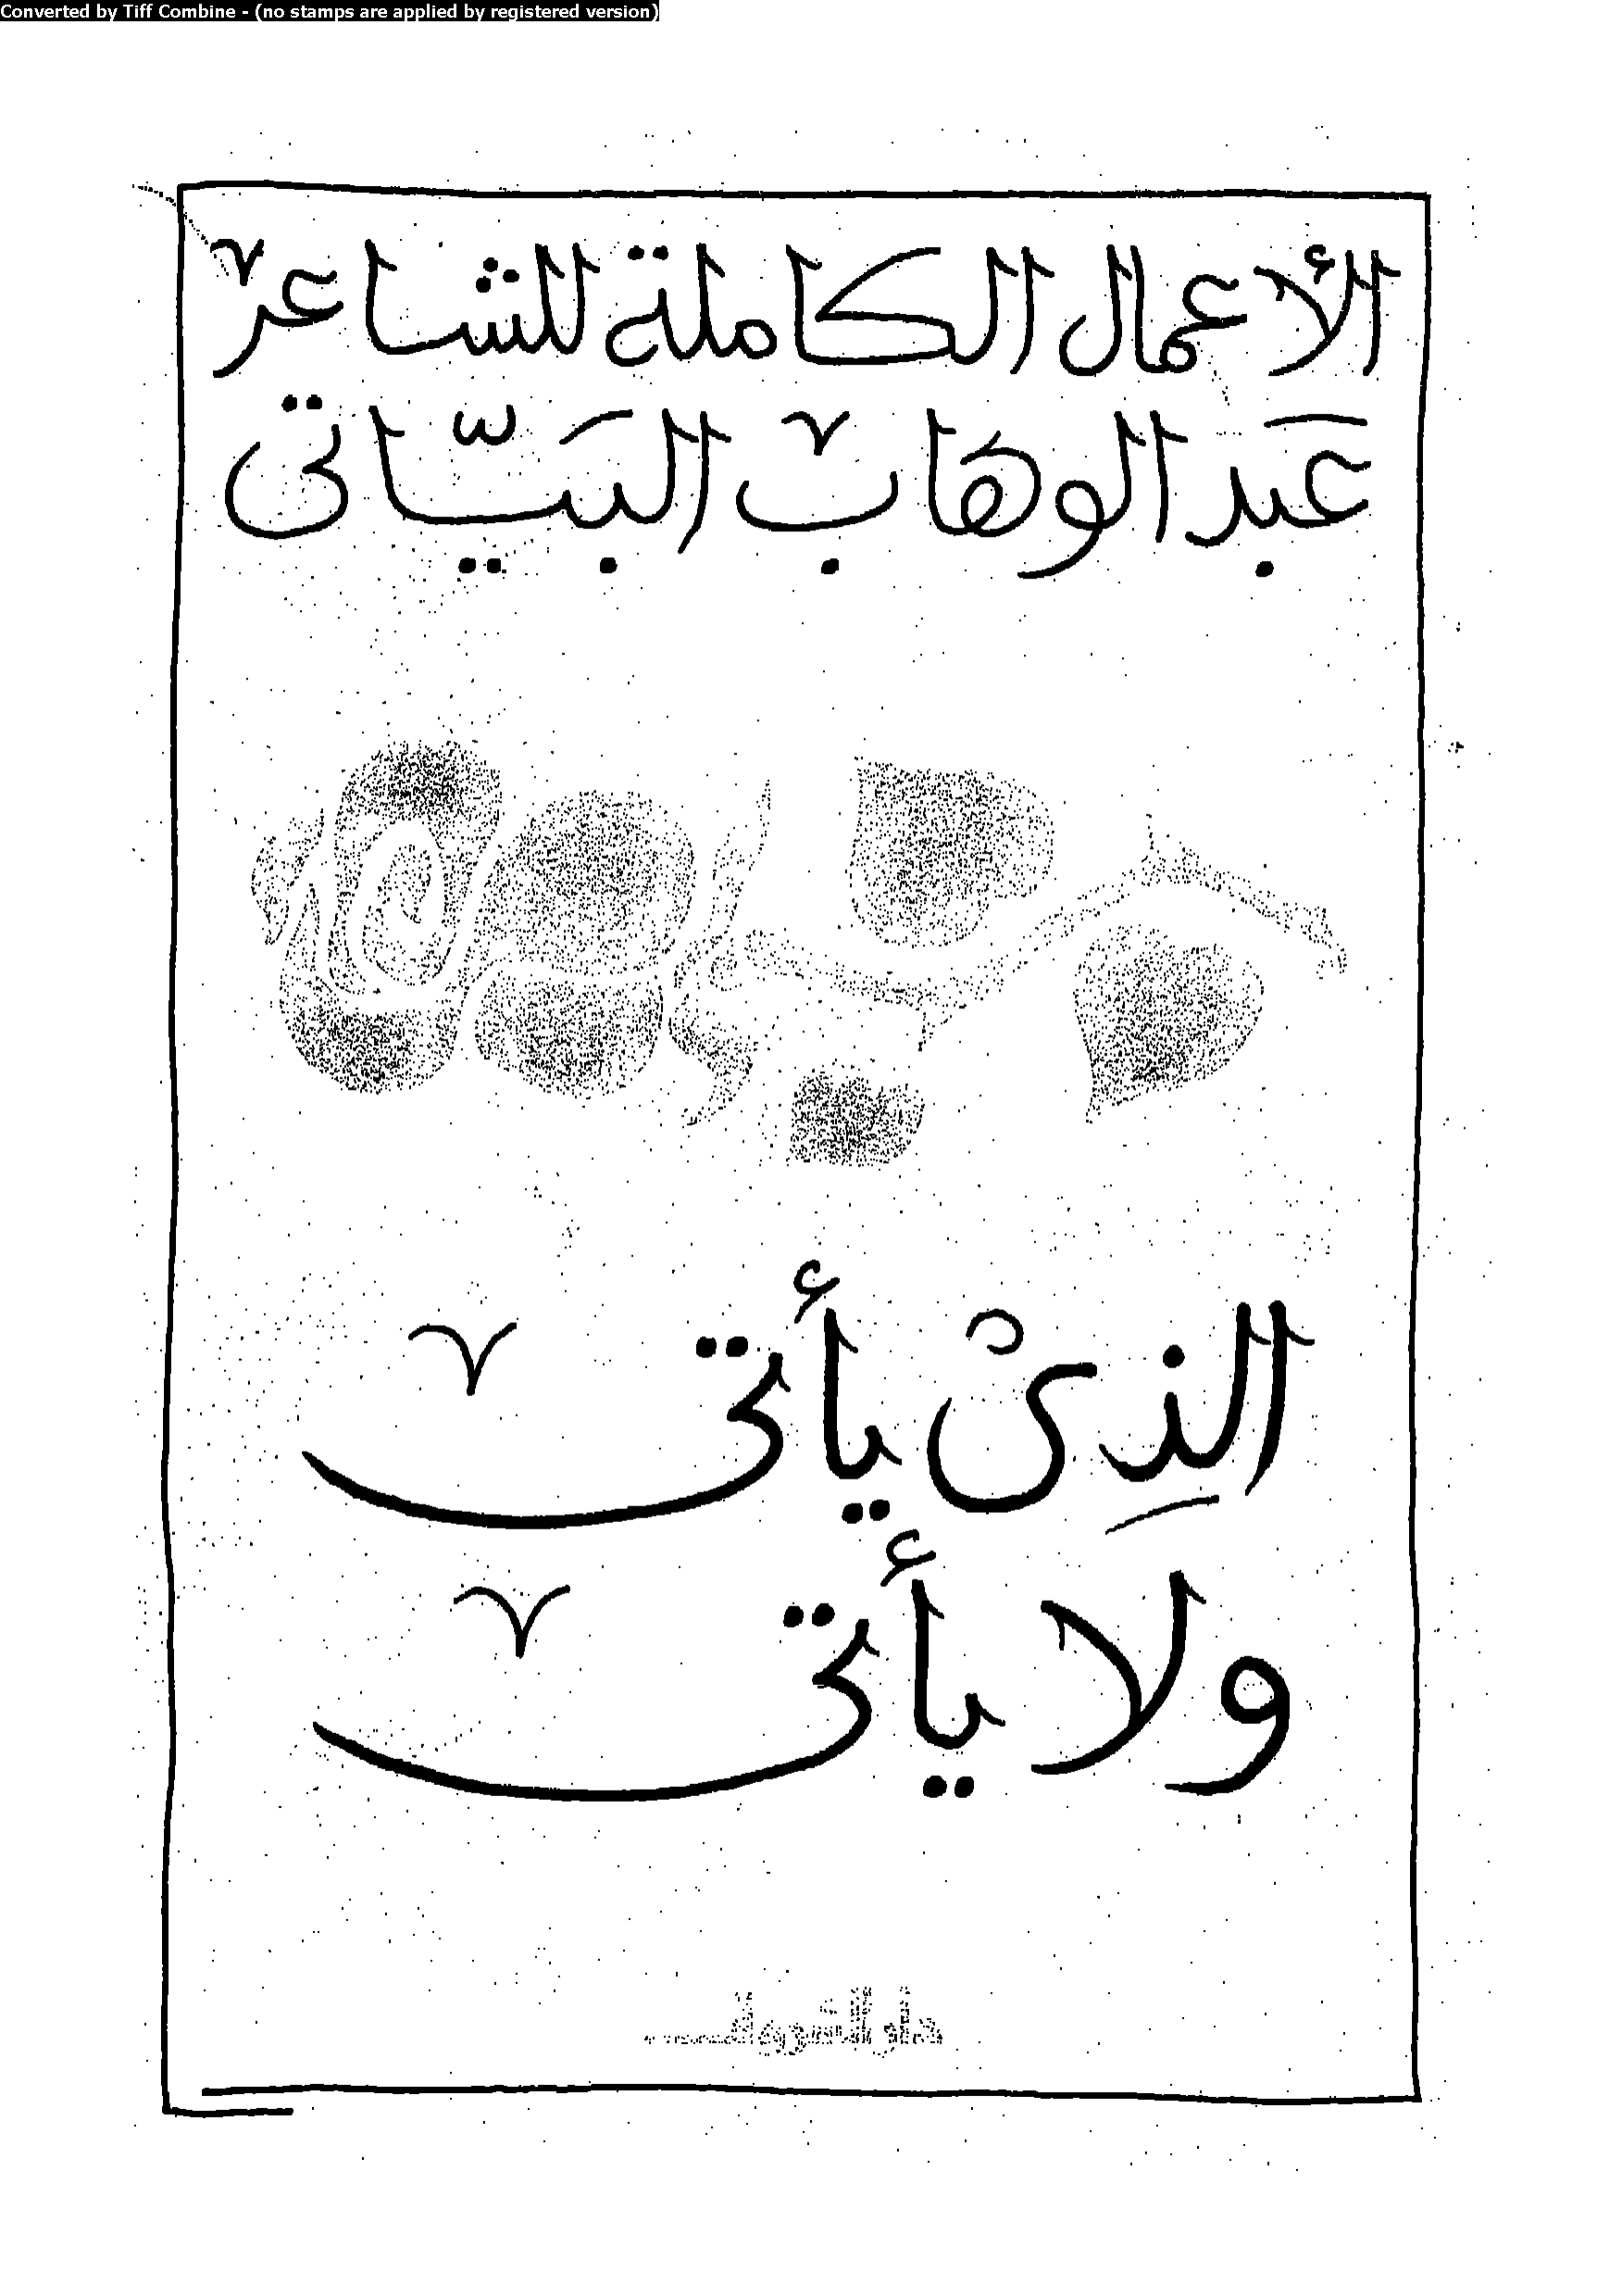 Converted by Tiff Combine - (no stamps are applied by registered version)
الأعمال الكاملة للشاعر
عَبد الوهاب البَيّاتى
الذِىْ يأتى
ولا يأتى
دار الشروق